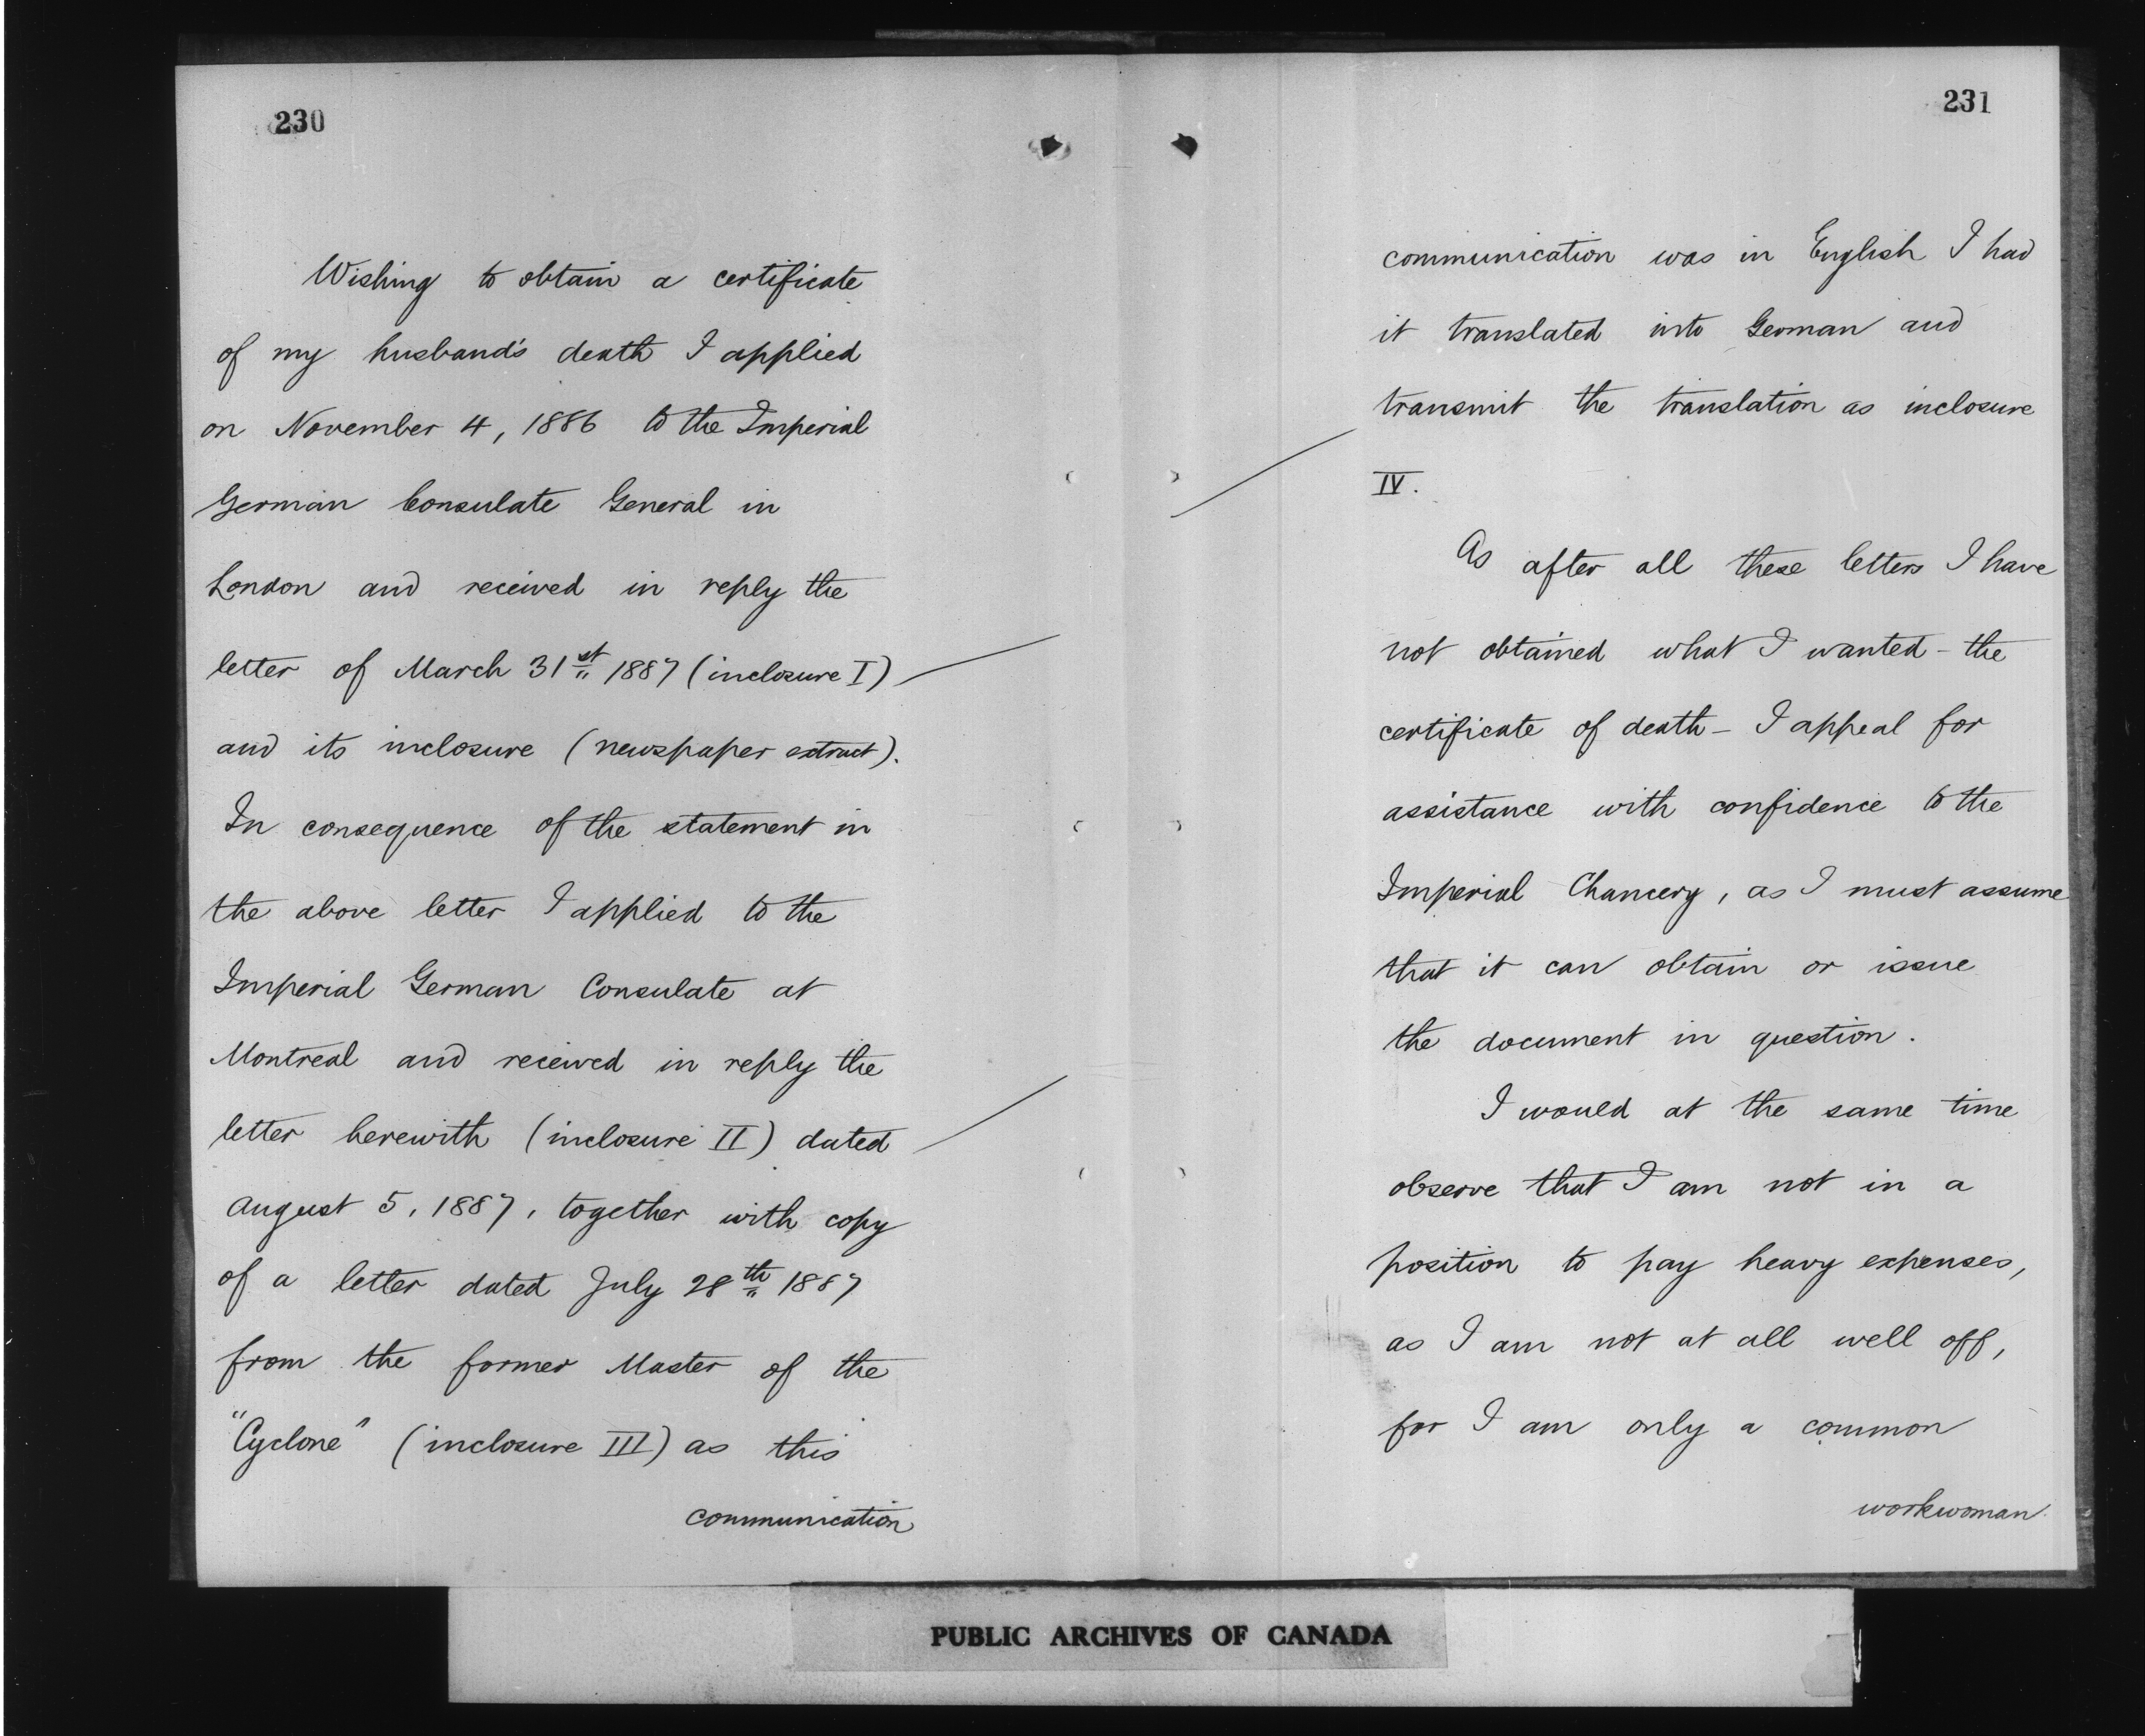 230
Wishing to obtain a certificate
of my husband's death I applied
on November 4, 1886 to the Imperial
German Consulate General in
London and received in reply the
letter of March 31st 1887 (inclosure I)
and its inclosure (newspaper extract).
In consequence of the statement in
the above letter I applied to the
Imperial German Consulate at
Montreal and received in reply the
letter herewith (inclosure II) dated
August 5, 1887, together with copy
of a letter dated July 28th 1887
from the former Master of the
"Cyclone" (inclosure III) as this
communication
231
communication was in English I had
it translated into German and
transmit the translation as inclosure
IV.
As after all these letters I have
not obtained what I wanted - the
certificate of death - I appeal for
assistance with confidence to the
Imperial Chancery, as I must assume
that it can obtain or issue
the document in question.
I would at the same time
observe that I am not in a
position to pay heavy expenses,
as I am not at all well off,
for I am only a common
workwoman.
PUBLIC ARCHIVES OF CANADA